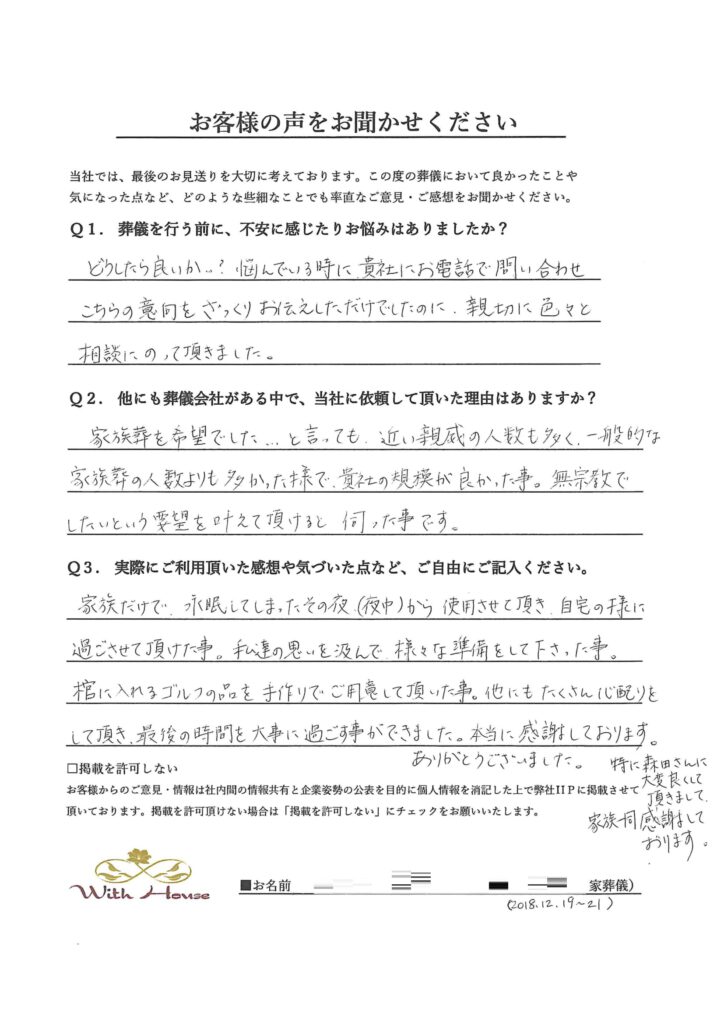 お客様の声をお聞かせください
当社では、最後のお見送りを大切に考えております。この度の葬儀において良かったことや
気になった点など、どのような些細なことでも率直なご意見・ご感想をお聞かせください。
Q1. 葬儀を行う前に、不安に感じたりお悩みはありましたか？
どうしたら良いか..? 悩んでいる時に貴社にお電話で問い合わせ
こちらの意向をざっくりお伝えしただけでしたのに、親切に色々と
相談にのって頂きました。
Q2. 他にも葬儀会社がある中で、当社に依頼して頂いた理由はありますか？
家族葬を希望でした...と言っても、近い親戚の人数も多く、一般的な
家族葬の人数よりも多かった様で、貴社の規模が良かった事。無宗教で
したいという要望を叶えて頂けると 伺った事です。
Q3. 実際にご利用頂いた感想や気づいた点など、ご自由にご記入ください。
家族だけで、永眠してしまったその夜(夜中)から使用させて頂き、自宅の様に
過ごさせて頂けた事。私達の思いを汲んで、様々な準備をして下さった事。
棺に入れるゴルフの品を手作りでご用意して頂いた事。他にもたくさん心配りを
して頂き、最後の時間を大事に過ごす事ができました。本当に感謝しております。
ありがとうございました。
特に森田さんに
大変良くして
頂きまして、
家族一同感謝して
おります。
□掲載を許可しない
お客様からのご意見・情報は社内間の情報共有と企業姿勢の公表を目的に個人情報を消記した上で弊社HPに掲載させて
頂いております。掲載を許可頂けない場合は「掲載を許可しない」にチェックをお願いいたします。
With House
■お名前 家葬儀）
(2018.12.19~21)